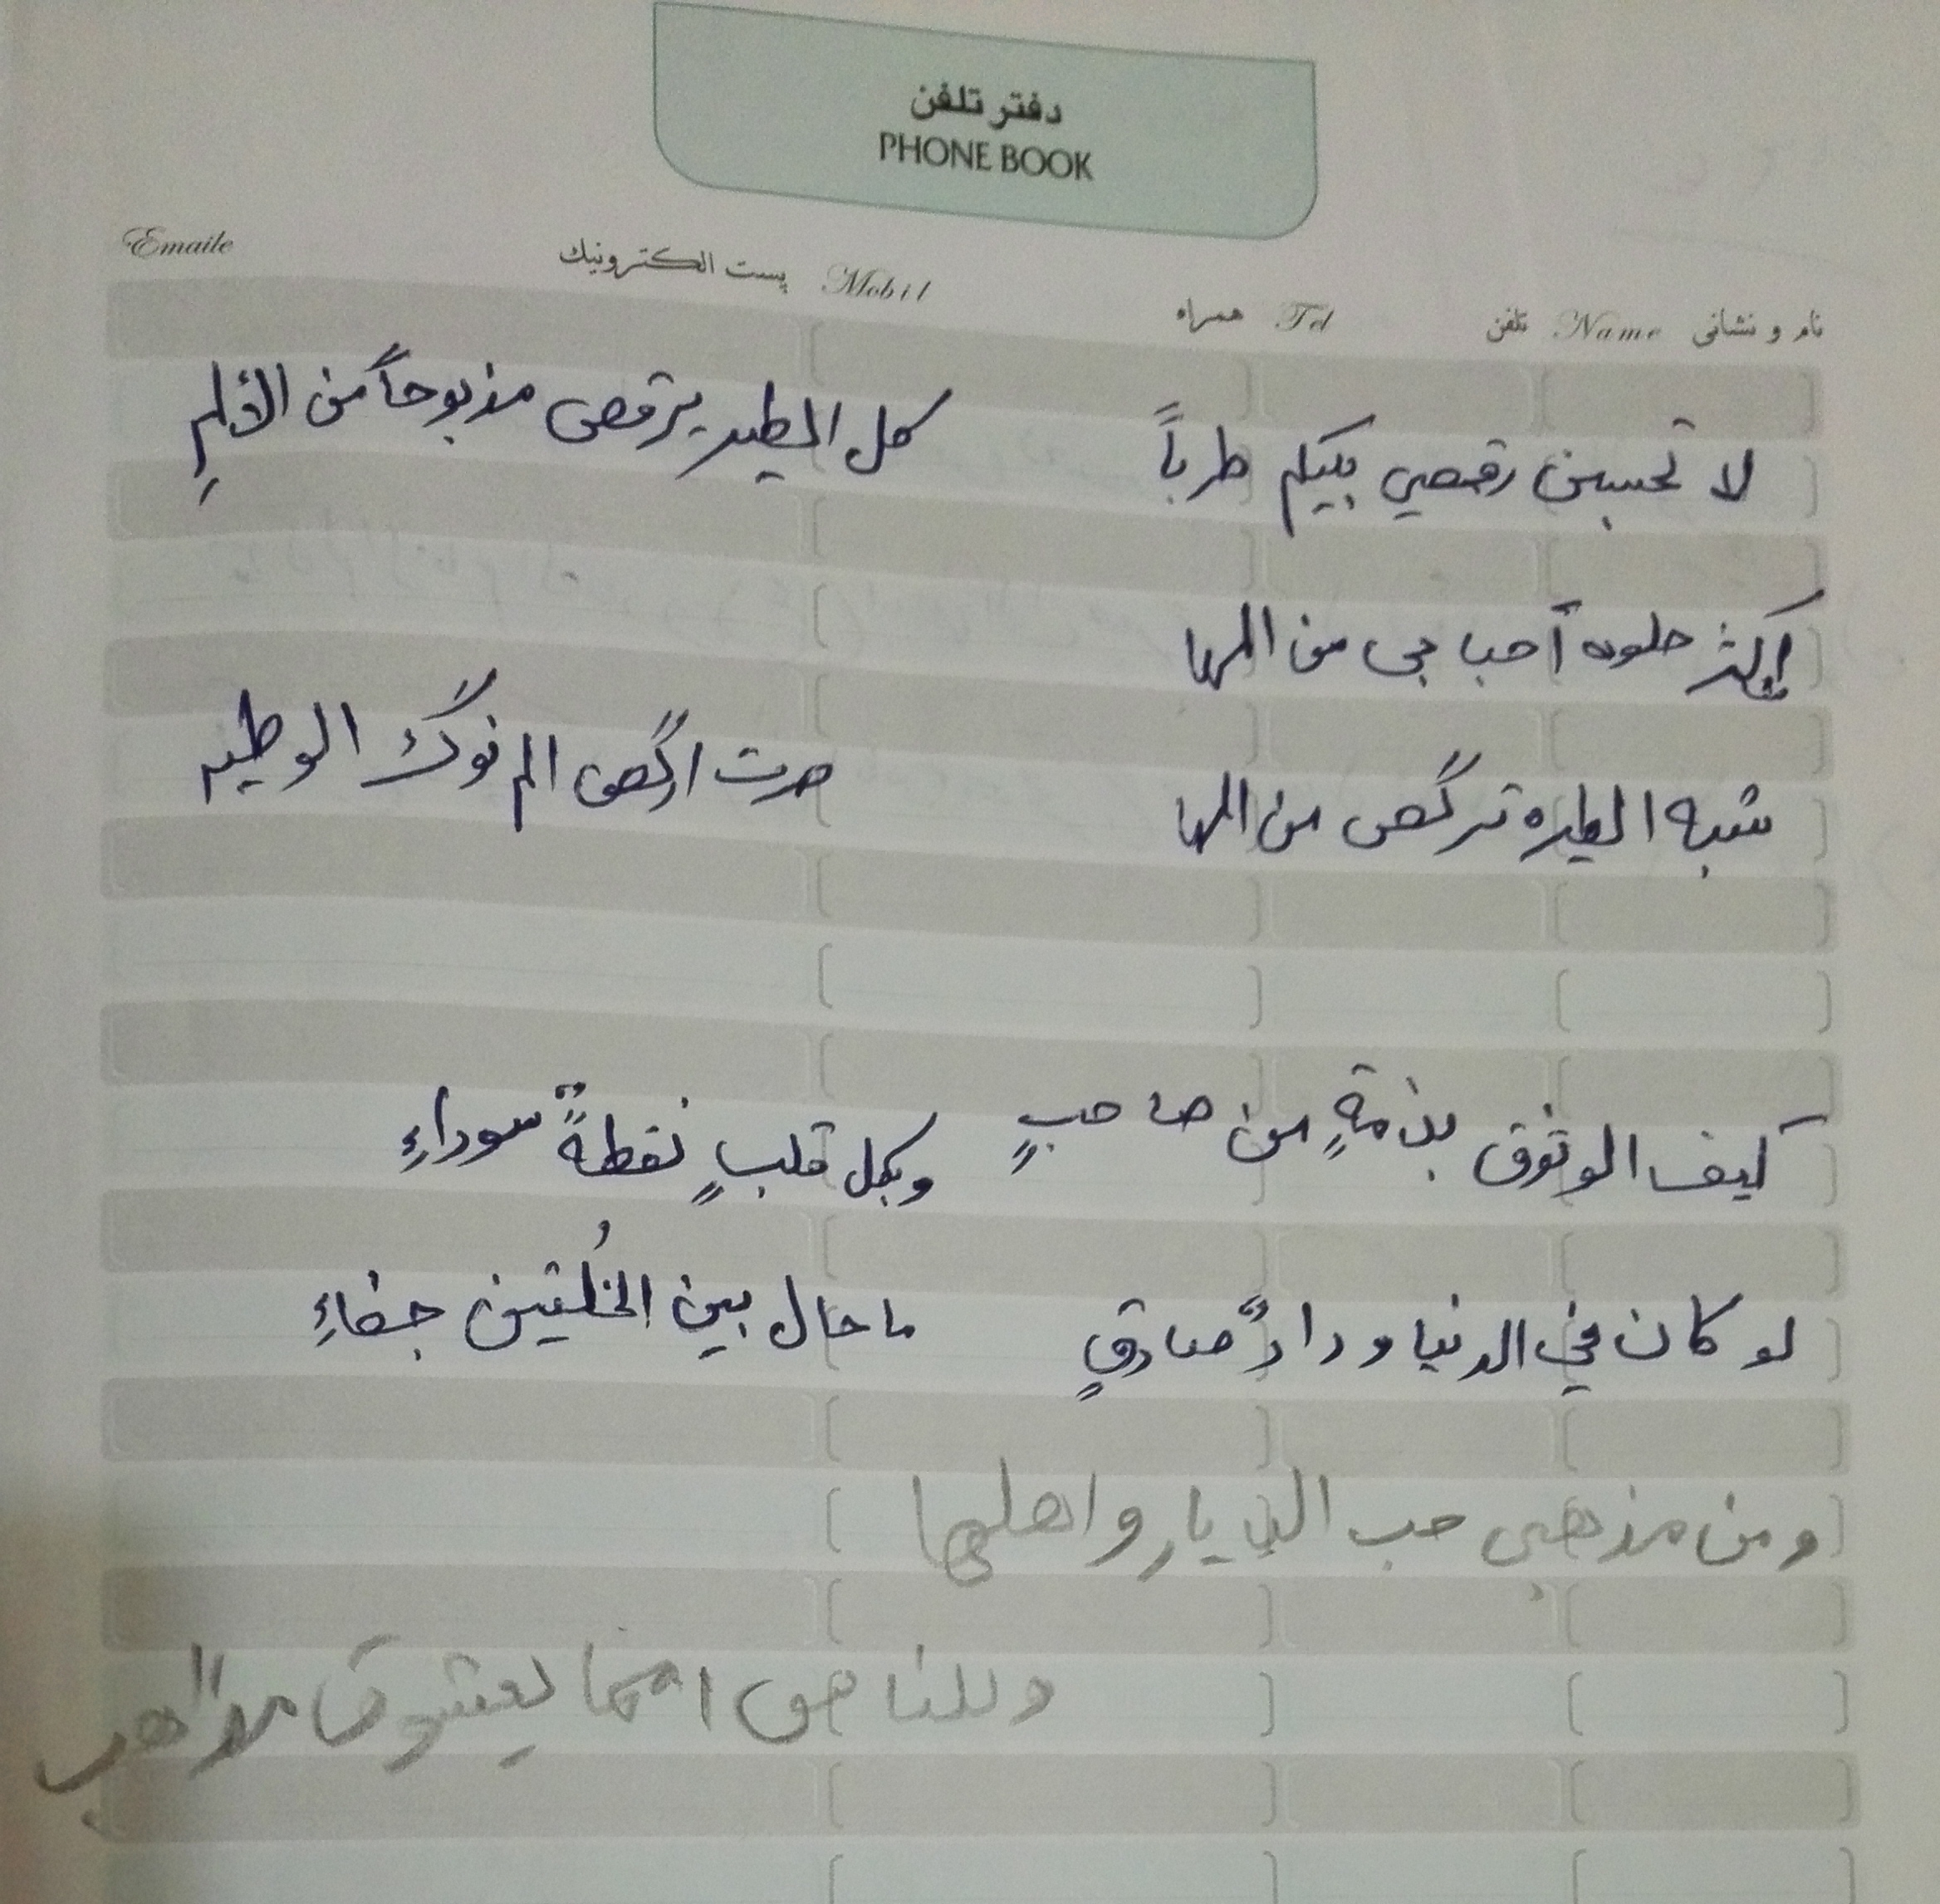 دفتر تلفن
PHONE BOOK
نام و نشانی Name تلفن Tel همراه Mobil پست الکترونیك Emaile
لا تحسبن رقصي بينكم طرباً كل الطير يرقص مذبوحاً من الألمِ
اكثر حلوه أحبا جى من المها
شبه الطيره ترگص من المها صرت ارگص الم فوگ الوطيه
كيف الوثوق بذمةٍ من صاحبٍ وبكل قلبٍ نقطةً سوداءِ
لو كان في الدنيا ودادً صادقٍ ما حال بين الخُلتين جفاءِ
ومن مذهبي حب الديار واهلها
وللناس فيما يعشقون مذاهب